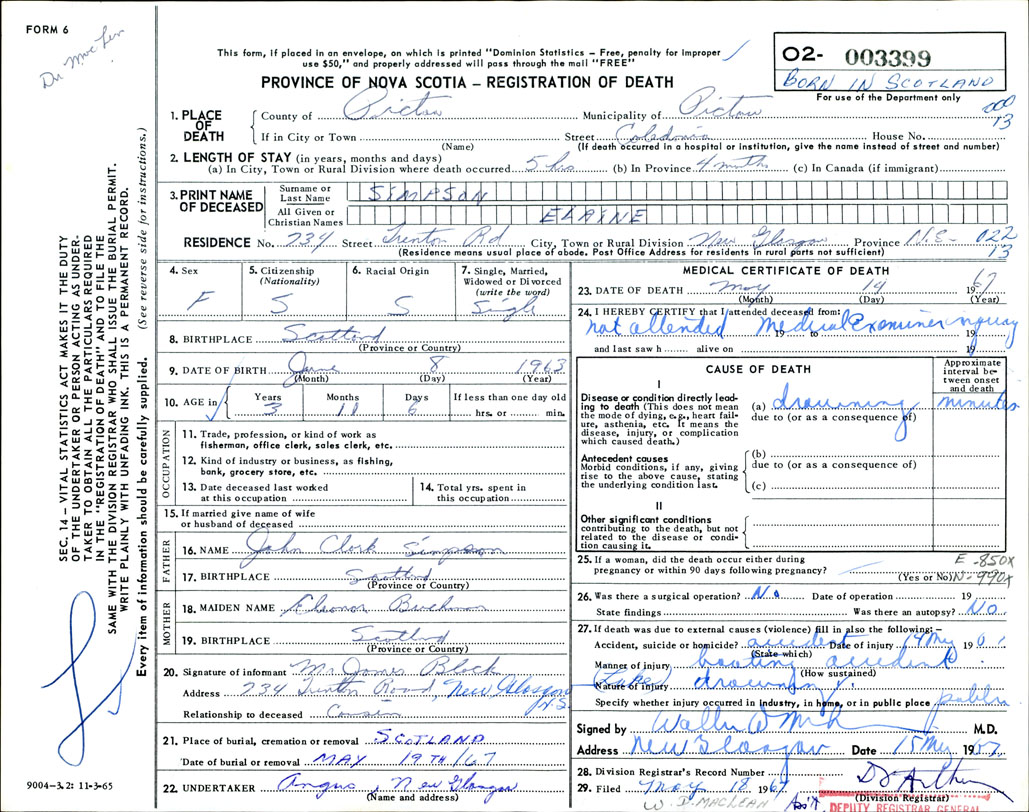 FORM 6
Dr MacLen
This form, if placed in an envelope, on which is printed "Dominion Statistics – Free, penalty for improper
use $50," and properly addressed will pass through the mail "FREE"
PROVINCE OF NOVA SCOTIA – REGISTRATION OF DEATH
O2- 003399
BORN IN SCOTLAND
For use of the Department only
000
13
1. PLACE OF DEATH
County of Pictou Municipality of Pictou
If in City or Town Street Caledonia House No.
(Name) (If death occurred in a hospital or institution, give the name instead of street and number)
2. LENGTH OF STAY (in years, months and days)
(a) In City, Town or Rural Division where death occurred 5 hrs (b) In Province 4 mnths (c) In Canada (if immigrant)
3. PRINT NAME OF DECEASED
Surname or Last Name SIMPSON
All Given or Christian Names ELAINE
RESIDENCE No. 234 Street Trenton Rd City, Town or Rural Division New Glasgow Province N.S- 022
(Residence means usual place of abode. Post Office Address for residents in rural parts not sufficient) 13
4. Sex F
5. Citizenship (Nationality) S
6. Racial Origin S
7. Single, Married, Widowed or Divorced (write the word) Single
8. BIRTHPLACE Scotland
(Province or Country)
9. DATE OF BIRTH June 8 1963
(Month) (Day) (Year)
10. AGE in Years 3 Months 11 Days 6 If less than one day old hrs. or min.
OCCUPATION
11. Trade, profession, or kind of work as
fisherman, office clerk, sales clerk, etc.
12. Kind of industry or business, as fishing,
bank, grocery store, etc.
13. Date deceased last worked
at this occupation
14. Total yrs. spent in
this occupation
15. If married give name of wife
or husband of deceased
FATHER
16. NAME John Clark Simpson
17. BIRTHPLACE Scotland
(Province or Country)
MOTHER
18. MAIDEN NAME Eleanor
19. BIRTHPLACE Scotland
(Province or Country)
20. Signature of informant Mr James Block
Address 234 Trenton Road, New Glasgow N.S.
Relationship to deceased Cousin
21. Place of burial, cremation or removal SCOTLAND
Date of burial or removal MAY 19TH /67
22. UNDERTAKER Angus, New Glasgow
(Name and address)
MEDICAL CERTIFICATE OF DEATH
23. DATE OF DEATH May 14 1967
(Month) (Day) (Year)
24. I HEREBY CERTIFY that I attended deceased from:
not attended Medical Examiner inquiry
19 19
and last saw h alive on 19
CAUSE OF DEATH
Approximate interval between onset and death
I
Disease or condition directly leading to death (This does not
mean the mode of dying, e.g., heart failure,
asthenia, etc. It means the
disease, injury, or complication
which caused death.)
(a) drowning minutes
due to (or as a consequence of)
Antecedent causes
Morbid conditions, if any, giving
rise to the above cause, stating
the underlying condition last.
(b)
due to (or as a consequence of)
(c)
II
Other significant conditions
contributing to the death, but not
related to the disease or condition
causing it.
25. If a woman, did the death occur either during
pregnancy or within 90 days following pregnancy?
(Yes or No)
E-850X
N-990X
26. Was there a surgical operation? No Date of operation 19
State findings Was there an autopsy? No
27. If death was due to external causes (violence) fill in also the following:–
Accident, suicide or homicide? accident Date of injury 14 May 196
(State which)
Manner of injury boating accident
(How sustained)
(Lake)
Nature of injury drowning
Specify whether injury occurred in industry, in home, or in public place public
Signed by M.D.
Address New Glasgow Date 15 May 1967
28. Division Registrar's Record Number
29. Filed May 18 1967
(Division Registrar)
W. D. MACLEAN
DEPUTY REGISTRAR GENERAL
SEC. 14 – VITAL STATISTICS ACT MAKES IT THE DUTY
OF THE UNDERTAKER OR PERSON ACTING AS UNDER-
TAKER TO OBTAIN ALL THE PARTICULARS REQUIRED
IN THE "REGISTRATION OF DEATH" AND TO FILE THE
SAME WITH THE DIVISION REGISTRAR WHO SHALL ISSUE THE BURIAL PERMIT.
WRITE PLAINLY WITH UNFADING INK. THIS IS A PERMANENT RECORD.
Every item of information should be carefully supplied. (See reverse side for instructions.)
9004-3,2: 11-3-65